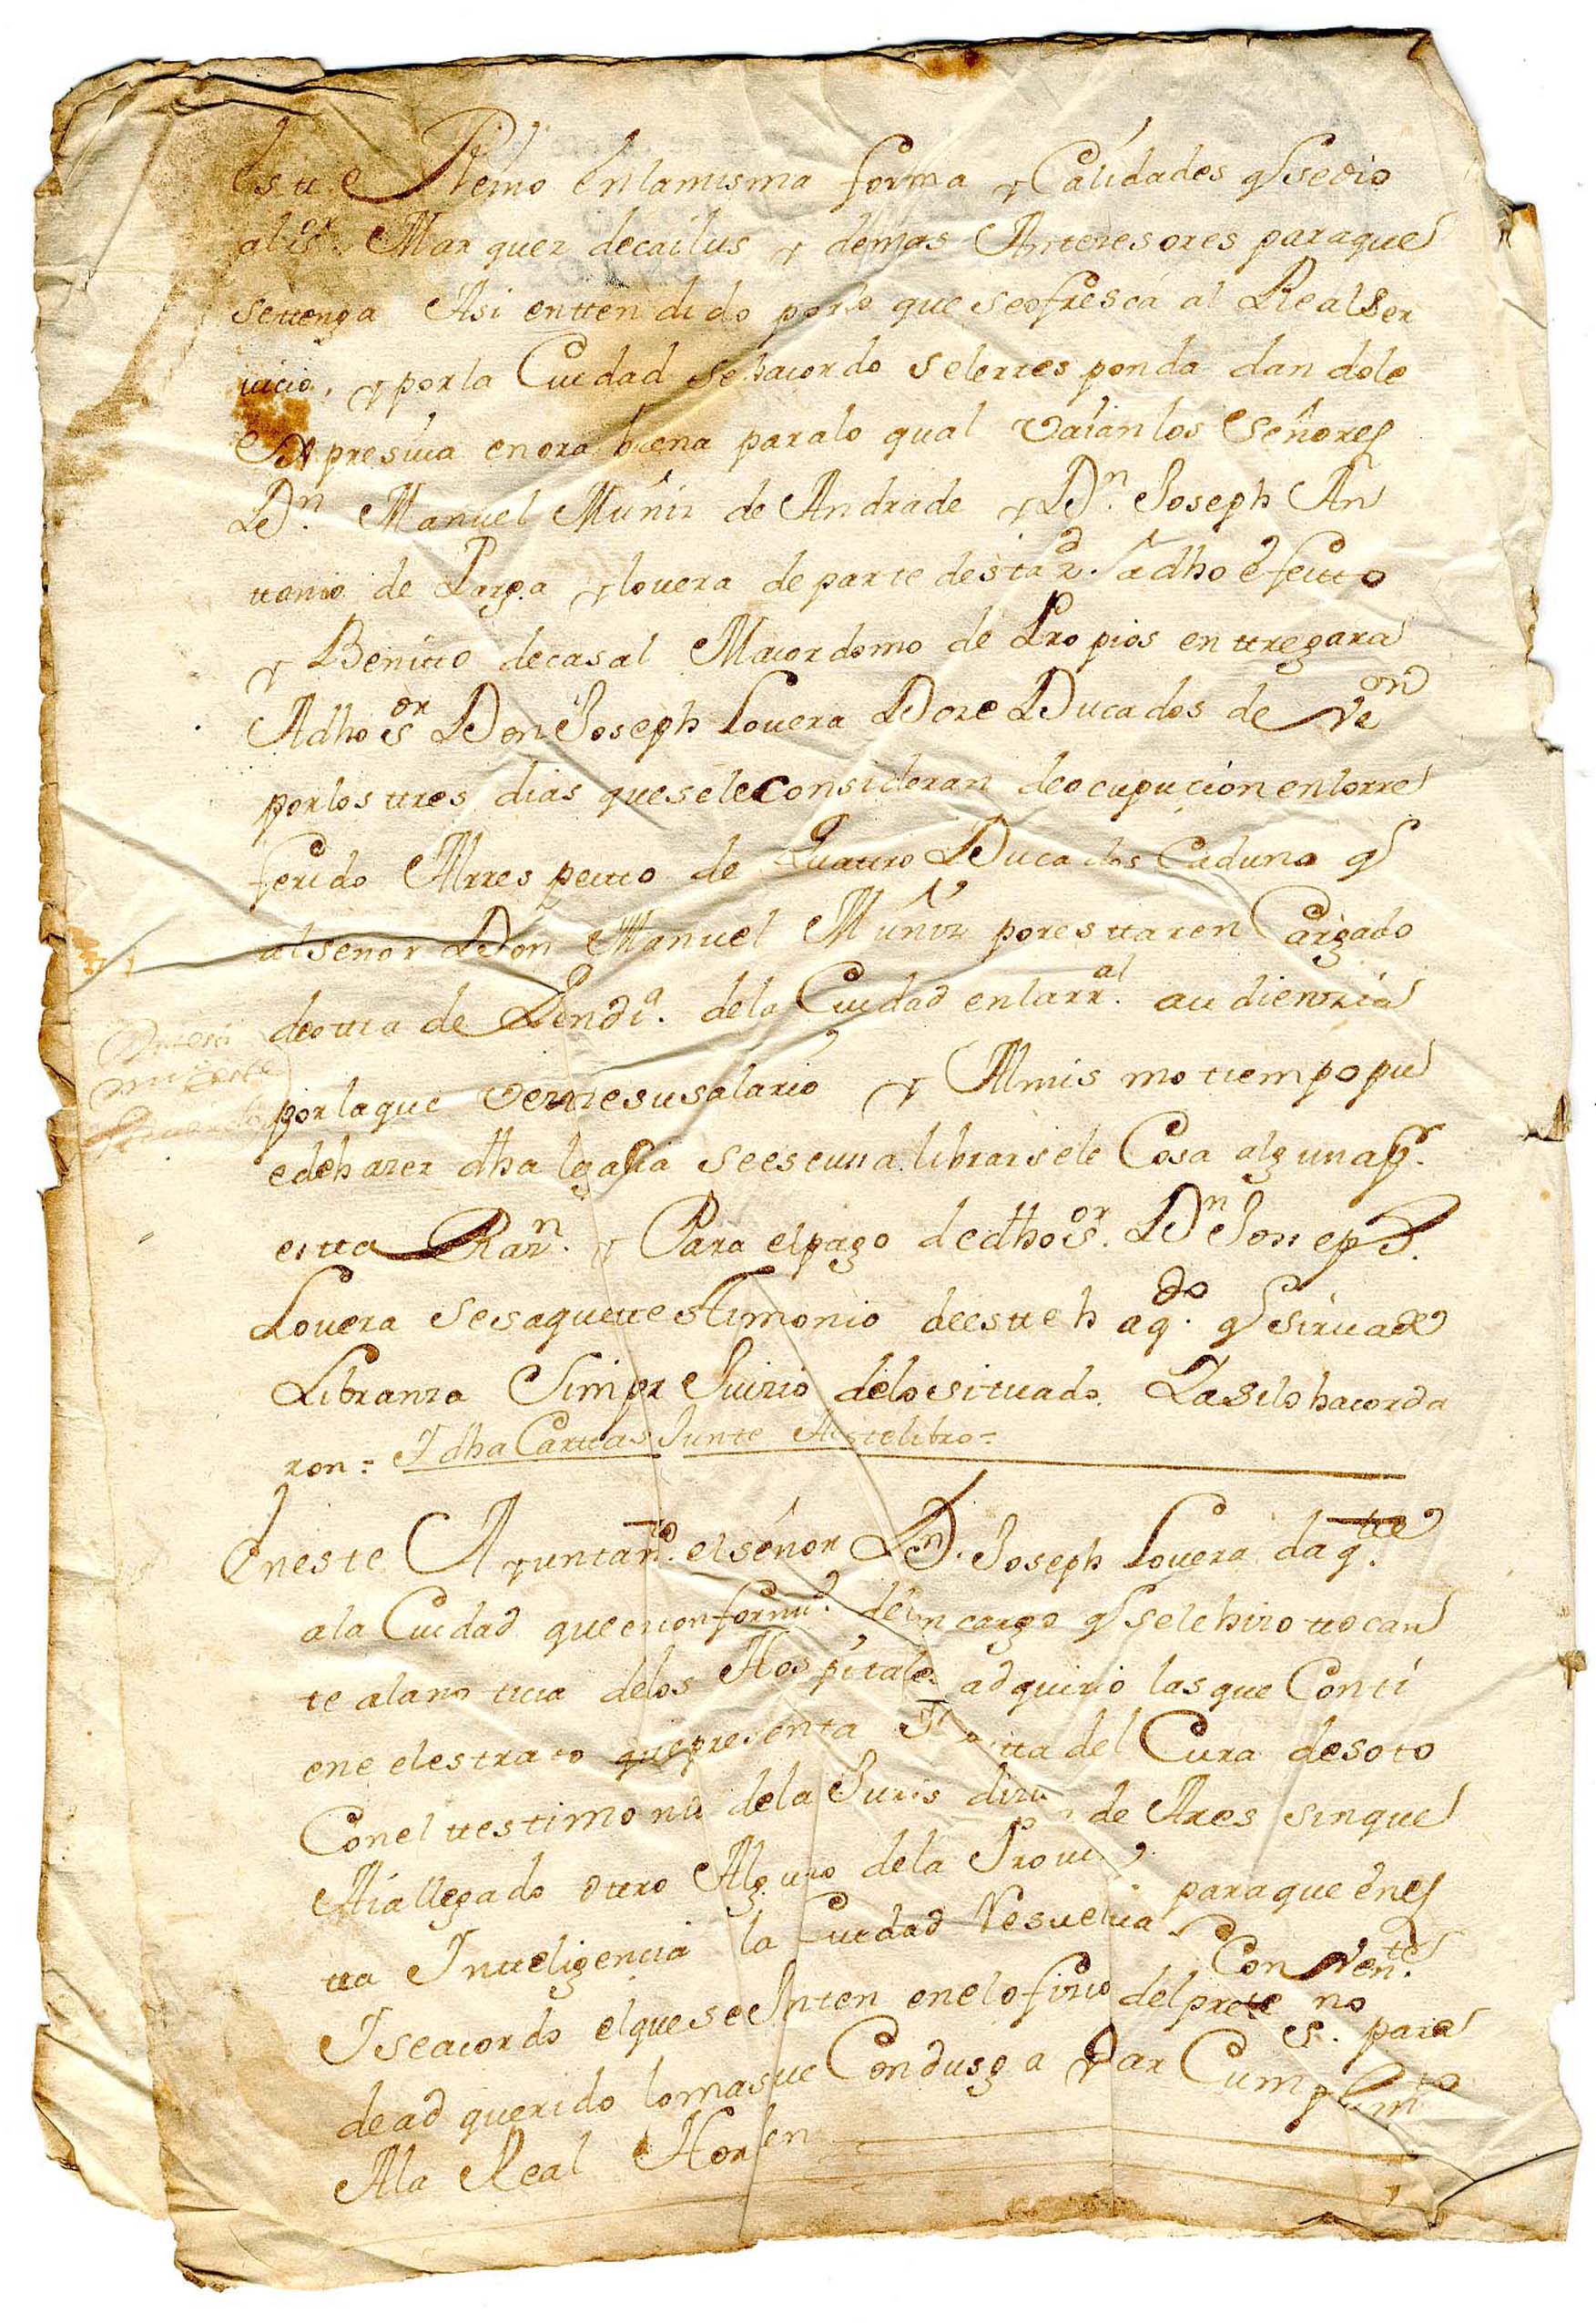 estte Reino enlamisma forma y Calidades q sedio
als.or Marquez decailus y demas Antezesores paraque
settenga Asi enttendido porlo que seofresca al Real Ser
uicio, y porla Ciudad sehacordo selerresponda dandole
Expresiua enora buena paralo qual vaian los Señores
Dn. Manuel Muñiz de Andrade y Dn. Joseph An
ttonio de Parga y louera de parte desta Adho efectto
y Benitto decasal Maiordomo de Propios enttregara
Adho s.or Don Joseph Louera Doze Ducados de Von
porlos ttres dias queseleConsideran deocupucion enlorre
ferido Arrespectto de Quattro Ducados Caduno q
alsenor Don Manuel Muñiz poresttaren Cargado
deottra de Pendi.a dela Ciudad enlarr.al audienzia
porlaque venze susalario y Almismotiempopu
edehazer dha legasia seescussa librarsele Cosa algunap.
estta Razn. y Para elpago dedho s.or Dn Joseph.
Louera Sesaquettestimonio deestteh aq.do q Siruade
Libranza Sinperjuizio delosituado. Yasilohacorda
ron = Y dha Carttas Junte Aestelibro =
Eneste Ayuntam.to elsenor Dn. Joseph Louera da q.tte
ala Ciudad queenconformd. delencargo q selehizo ttocan
te alanoticia delos Hospitales adquirio lasque Conti
ene elestracto quepresenta del Cura desoto
Conel ttestimonio dela Jurisdizn de Ares sinque
Aiallegado ottro Alguno dela Prouª, paraque enes
tta Intteligencia la Ciudad Resuelua Con ten.te
Yseacordo elquese Inten enelofizio delprete s.no para
deadquerido lomasque Condusga y dar Cumplim.to
Ala Real Horden